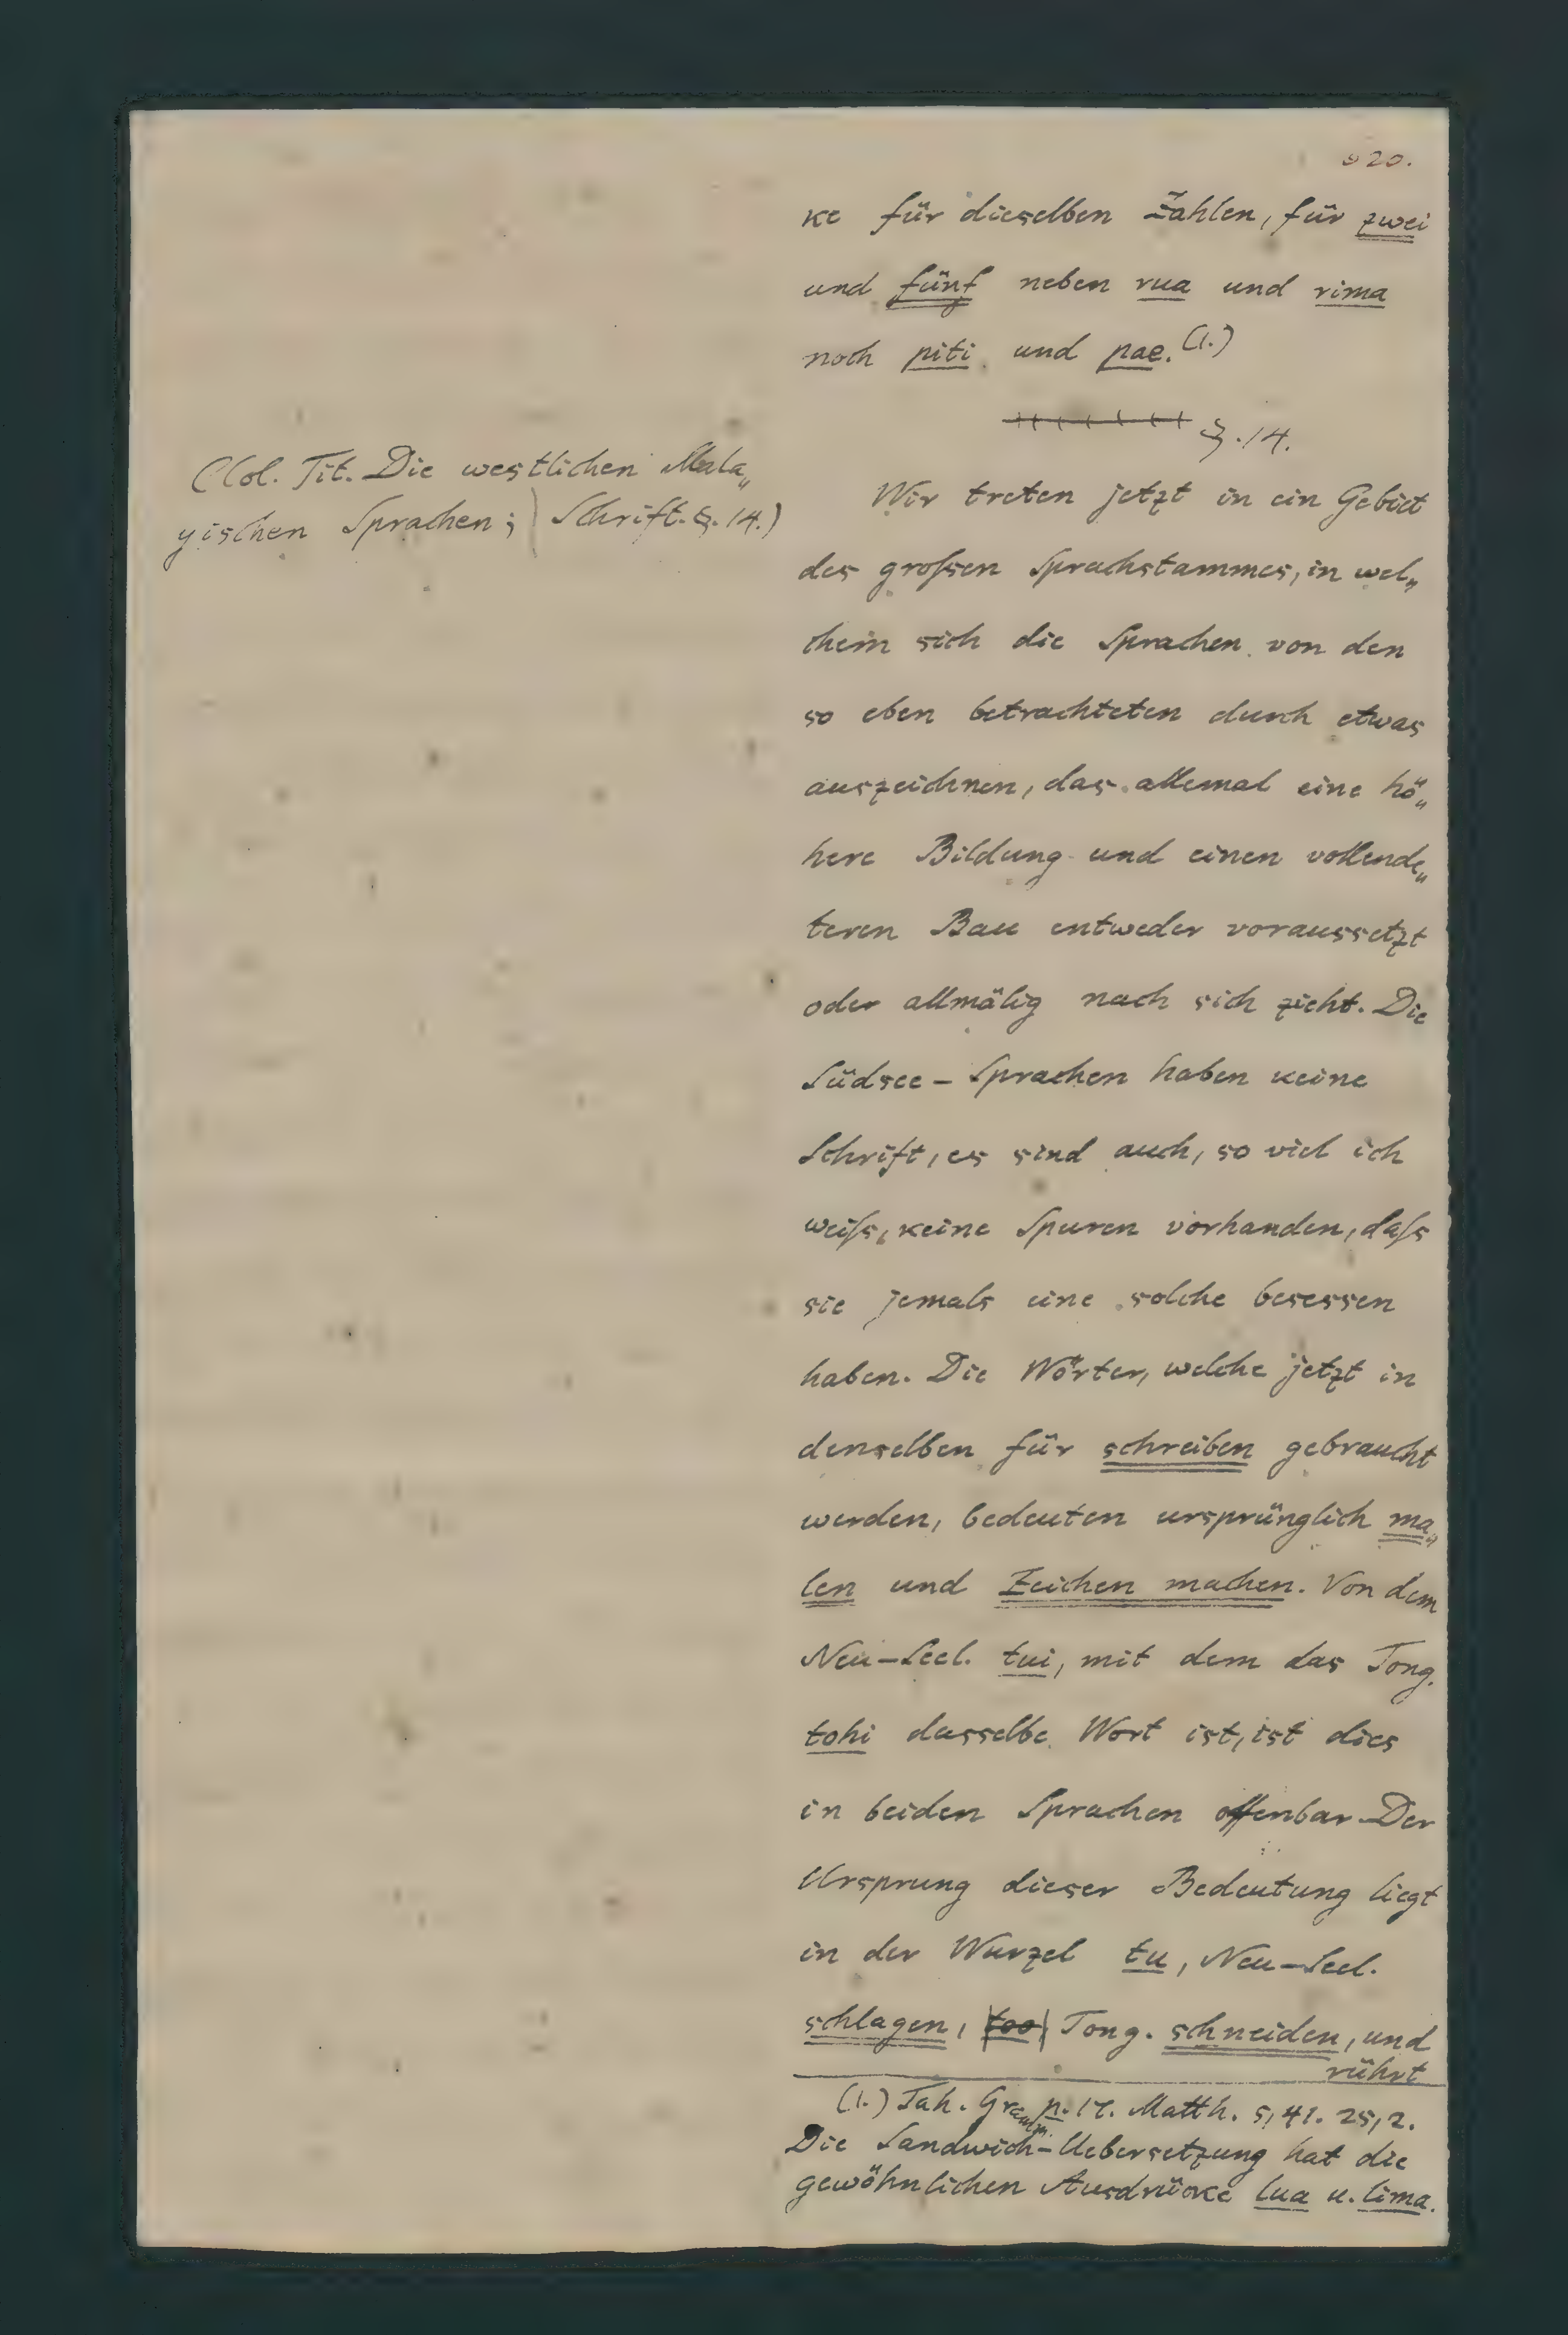 520.
ke für dieselben Zahlen, für zwei
und fünf neben rua und rima
noch piti und pae. (1.)
§. 14.
(Col. Tit. Die westlichen Mala„
yischen Sprachen; Schrift. §. 14.)
Wir treten jetzt in ein Gebiet
des großen Sprachstammes, in wel„
chem sich die Sprachen von den
so eben betrachteten durch etwas
auszeichnen, das allemal eine hö„
here Bildung und einen vollende„
teren Bau entweder voraussetzt
oder allmälig nach sich zieht. Die
Südsee-Sprachen haben keine
Schrift, es sind auch, so viel ich
weiß, keine Spuren vorhanden, daß
sie jemals eine solche besessen
haben. Die Wörter, welche jetzt in
denselben für schreiben gebraucht
werden, bedeuten ursprünglich ma„
len und Zeichen machen. Von dem
Neu-Seel. tui, mit dem das Tong.
tohi dasselbe Wort ist, ist dies
in beiden Sprachen offenbar. Der
Ursprung dieser Bedeutung liegt
in der Wurzel tu, Neu-Seel.
schlagen, too Tong. schneiden, und
rührt
(1.) Tah. Gramm. p. 17. Matth. 5, 41. 25, 2.
Die Sandwich-Uebersetzung hat die
gewöhnlichen Ausdrücke lua u. lima.